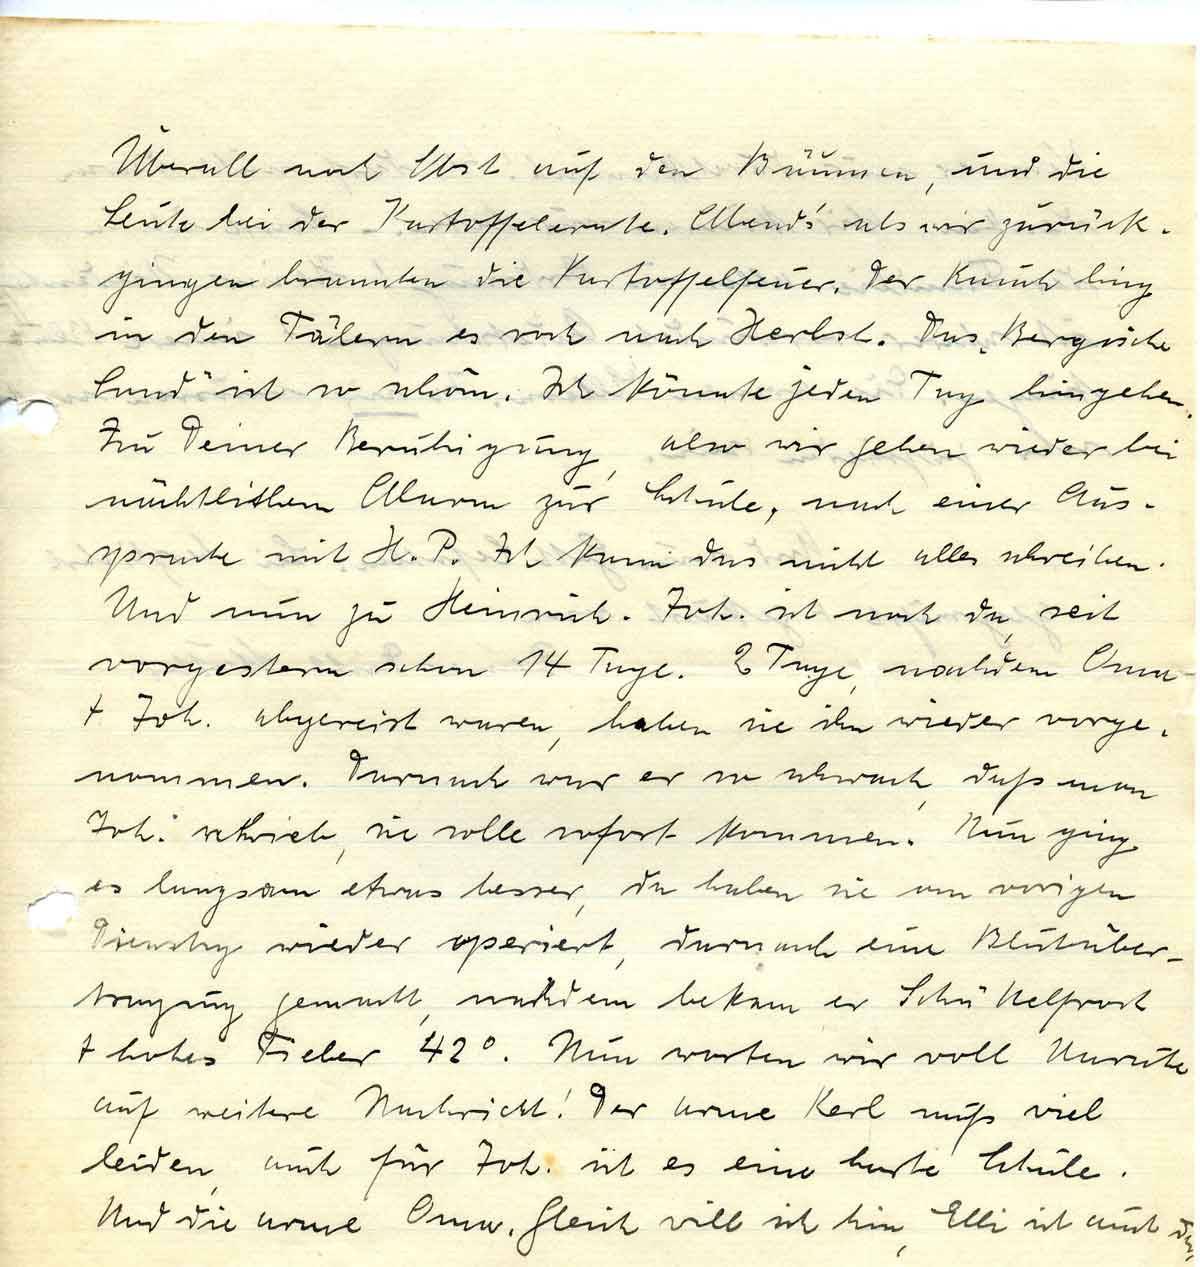 Überall noch Obst auf den Bäumen, und die
Leute bei der Kartoffelernte. Abends als wir zurück-
gingen brannten die Kartoffelfeuer. Der Rauch hing
in den Tälern es roch nach Herbst. Das „Bergische
Land" ist so schön. Ich könnte jeden Tag hingehen.
Zu Deiner Beruhigung, also wir gehen wieder bei
nächtlichem Alarm zur Schule, nach einer Aus-
sprache mit H. P. Ich kann das nicht alles schreiben.
Und nun zu Heinrich. Joh. ist noch da, seit
vorgestern schon 14 Tage. 2 Tage, nachdem Oma
+ Joh. abgereist waren, haben sie ihn wieder vorge-
nommen. Darnach war er so schwach, daß man
Joh. schrieb, sie solle sofort kommen. Nun ging
es langsam etwas besser, da haben sie am vorigen
Dienstag wieder operiert, darnach eine Blutüber-
tragung gemacht, nachdem bekam er Schüttelfrost
+ hohes Fieber 42°. Nun warten wir voll Unruhe
auf weitere Nachricht! Der arme Kerl muß viel
leiden, auch für Joh. ist es eine harte Schule.
Und die arme Oma. Gleich will ich hin, Elli ist auch da,